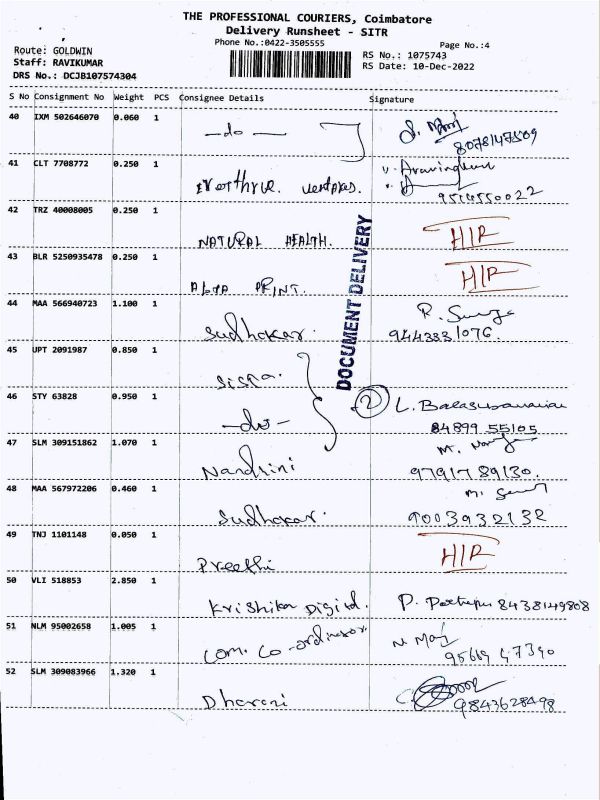 THE PROFESSIONAL COURIERS, Coimbatore
Delivery Runsheet - SITR
Phone No.:0422-3505555
Page No.:4
Route: GOLDWIN
Staff: RAVIKUMAR
DRS No.: DCJB107574304
RS No.: 1075743
RS Date: 10-Dec-2022
S No Consignment No Weight PCS Consignee Details Signature
40 IXM 502646070 0.060 1 -do-
8078147509
41 CLT 7708772 0.250 1
42 TRZ 40008005 0.250 1 NATURAL HEALTH. HIR
43 BLR 5250935478 0.250 1 PRINT. HIR
DOCUMENT DELIVERY
44 MAA 566940723 1.100 1 Sudhakar. R.
45 UPT 2091987 0.850 1
46 STY 63828 0.950 1 -do- 2
84899 55105
47 SLM 309151862 1.070 1 Nandhini M.
97917 89130.
48 MAA 567972206 0.460 1 Sudhakar. M.
9003932132
49 TNJ 1101148 0.050 1 Preethi HIR
50 VLI 518853 2.850 1 Krishika Digital. P. 8438149808
51 NLM 95002658 1.005 1 Com. Co-ordinator N.
52 SLM 309083966 1.320 1 Dharani
9843628498